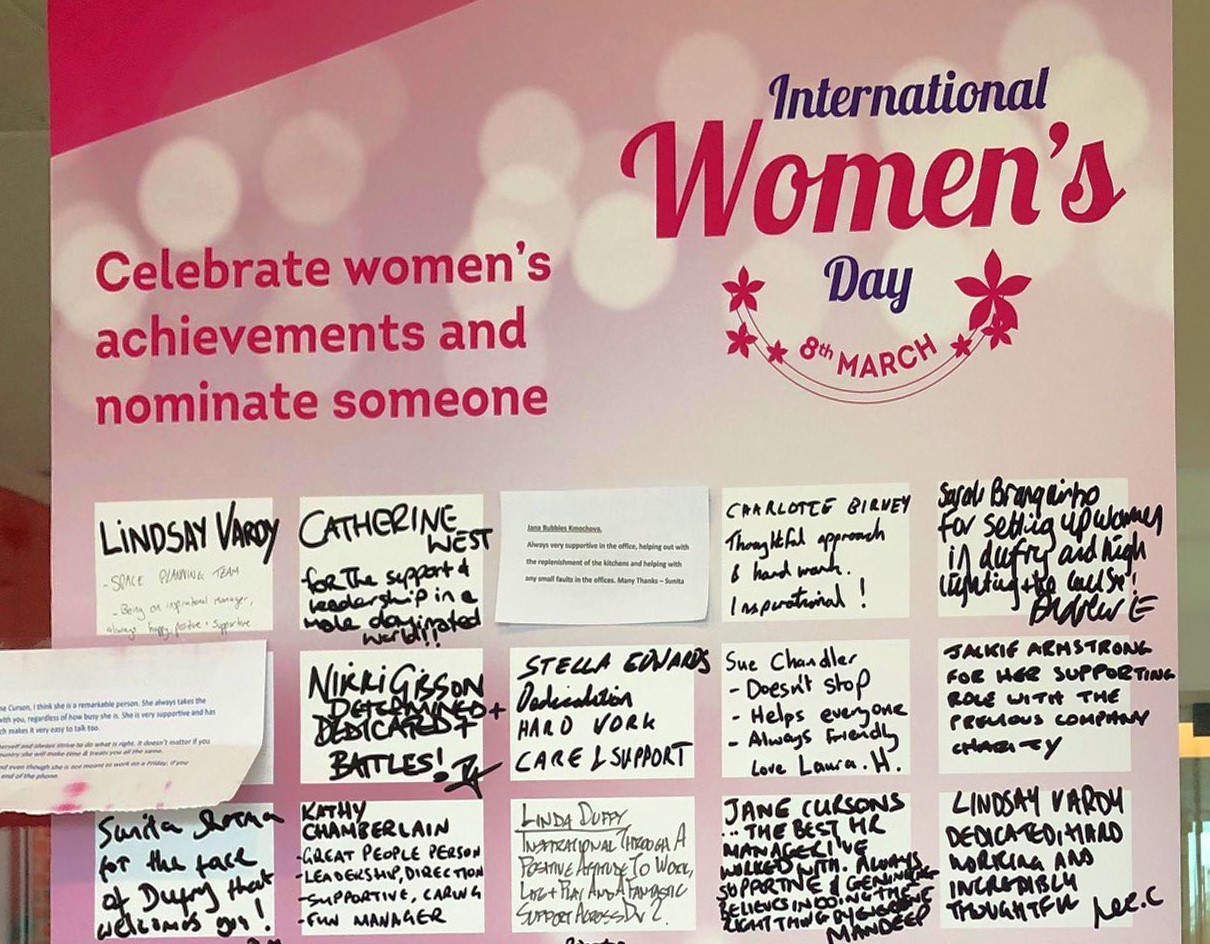 International
Women's
Day
8th MARCH
Celebrate women's
achievements and
nominate someone
LINDSAY VARDY
- SPACE PLANNING TEAM
- Being an inspirational manager,
always happy, positive + supportive
CATHERINE
WEST
for the support &
leadership in a
male dominated
world!!
Jana Bubbles Kmochova.
Always very supportive in the office, helping out with
the replenishment of the kitchens and helping with
any small faults in the offices. Many Thanks – Sunita
CHARLOTTE BIRNEY
Thoughtful approach
& hard work.
Inspirational!
Sarah Branquinho
for setting up women
in dufry and high
lighting the
Andrew E
Curson, I think she is a remarkable person. She always takes the
with you, regardless of how busy she is. She is very supportive and has
makes it very easy to talk too.
herself and always strive to do what is right. It doesn't matter if you
she will make time & treats you all the same.
and even though she is not meant to work on a Friday, if you
end of the phone.
NIKKI GIBSON
DETERMINED +
DEDICATED +
BATTLES!
STELLA EDWARDS
Dedication
HARD WORK
CARE & SUPPORT
Sue Chandler
- Doesn't stop
- Helps everyone
- Always friendly
Love Laura. H.
JACKIE ARMSTRONG
FOR HER SUPPORTING
ROLE WITH THE
PREVIOUS COMPANY
CHARITY
Sunita
for the face
of Dufry that
welcomes you!
KATHY
CHAMBERLAIN
- GREAT PEOPLE PERSON
- LEADERSHIP, DIRECTION
- SUPPORTIVE, CARING
- FUN MANAGER
LINDA DUFFY
INSPIRATIONAL THROUGH A
POSITIVE ATTITUDE TO WORK,
LIFE + PLAY AND A FANTASTIC
SUPPORT ACROSS DIV 2.
JANE CURSONS
... THE BEST HR
MANAGER I'VE
WORKED WITH. ALWAYS
SUPPORTIVE & GENUINELY
BELIEVES IN DOING THE
RIGHT THING BY EVERYONE
MANDEEP
LINDSAY VARDY
DEDICATED, HARD
WORKING AND
INCREDIBLY
THOUGHTFUL
Lee.C